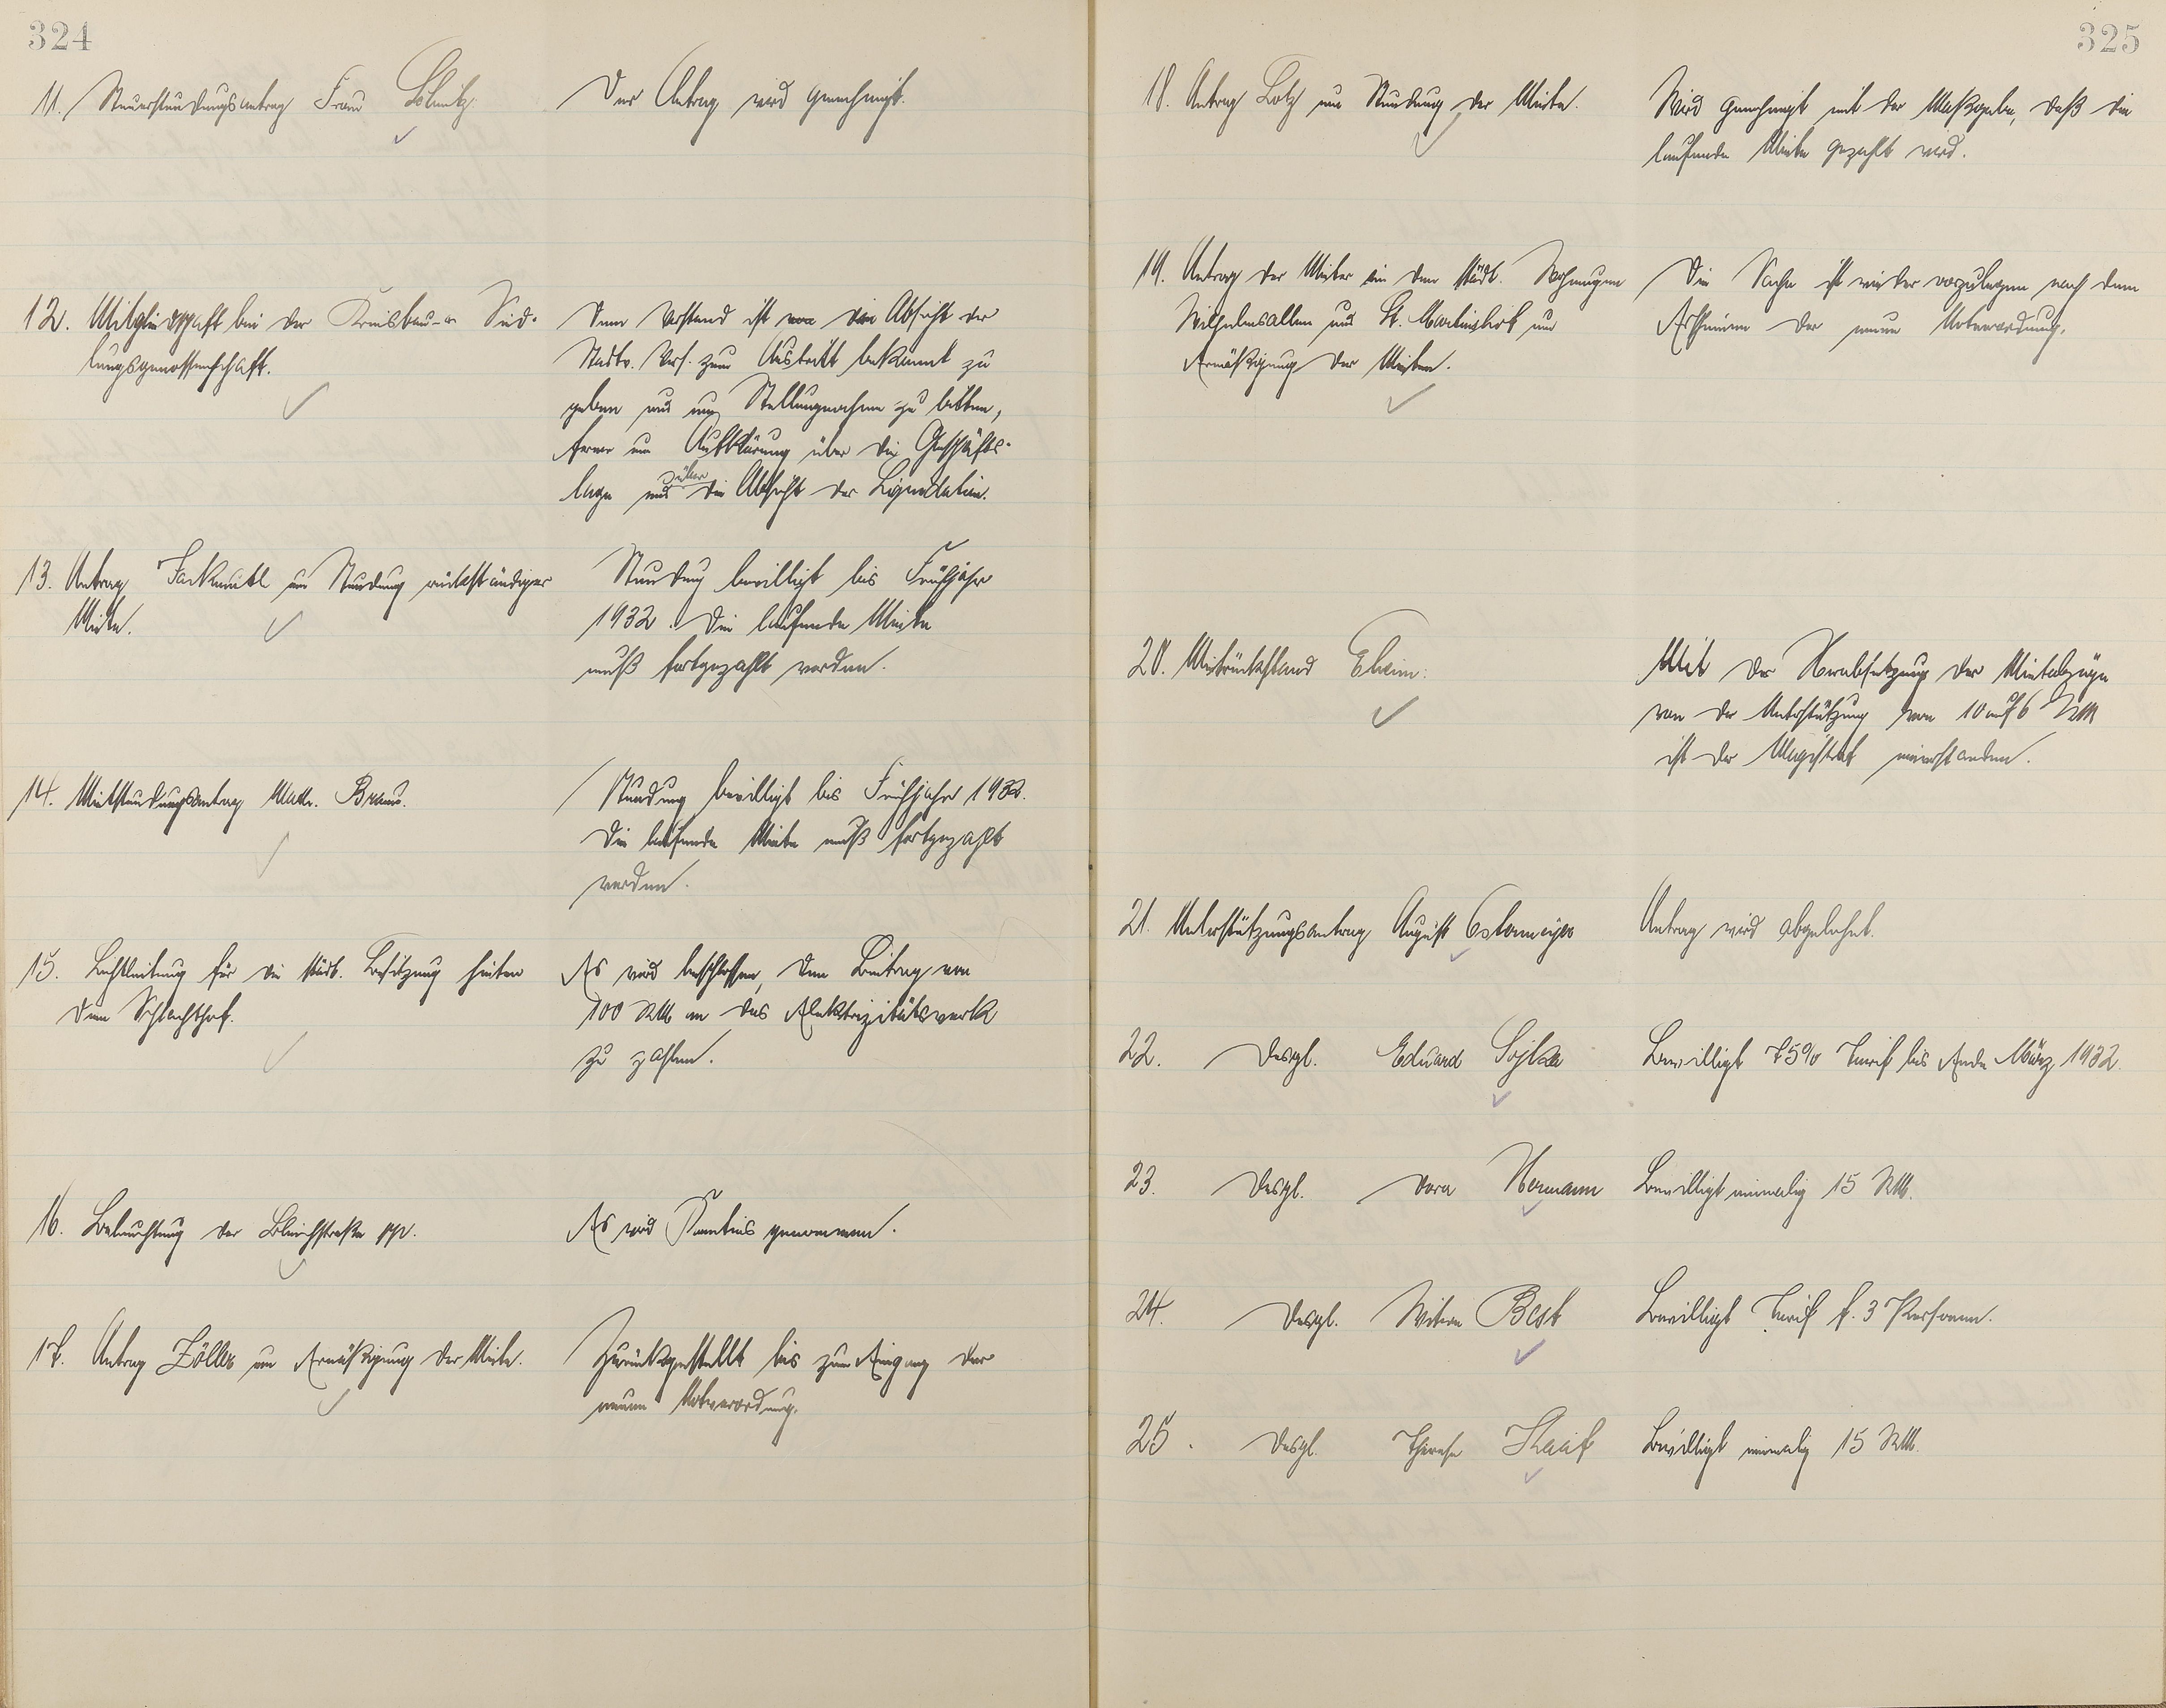 324
11. Steuerstundungsantrag Frau
Der Antrag wird genehmigt.
12. Mitgliedschaft bei der Kreisbau- u. Sied-
lungsgenossenschaft.
Dem Vorstand ist die Absicht der
Stadtv. Vers. zum Austritt bekannt zu
geben und um Stellungnahme zu bitten,
ferner um Aufklärung über die Geschäfts-
lage und über die Absicht der Liquidation.
13. Antrag um Stundung rückständiger
Miete.
Stundung bewilligt bis Frühjahr
1932. Die laufende Miete
muß fortgezahlt werden.
14. Mietstundungsantrag Braun.
Stundung bewilligt bis Frühjahr 1932.
Die laufende Miete muß fortgezahlt
werden.
15. Lichtleitung für die städt. Besitzung hinter
dem Schlachthof.
Es wird beschlossen, den Beitrag von
100 RM an das Elektrizitätswerk
zu zahlen.
16. Beleuchtung der Bleichstraße pp.
Es wird Kenntnis genommen.
17. Antrag Zöller um Ermäßigung der Miete.
Zurückgestellt bis zum Eingang der
neuen Notverordnung.
325
18. Antrag Lotz um Stundung der Miete.
Wird genehmigt mit der Maßgabe, daß die
laufende Miete gezahlt wird.
19. Antrag der Mieter in den städt. Wohnungen
Wilhelmsallee und St. um
Ermäßigung der Mieten.
Die Sache ist wieder vorzulegen nach dem
Erscheinen der neuen Notverordnung.
20. Mietrückstand Eheim.
Mit der Herabsetzung der Mietabzüge
von der Unterstützung von 10 auf 6 RM
ist der Magistrat einverstanden.
21. Unterstützungsantrag August
Antrag wird abgelehnt.
22. Desgl. Eduard Sojka
Bewilligt 75% Tarif bis Ende März 1932.
23. Desgl. Dora Hermann
Bewilligt einmalig 15 RM.
24. Desgl. Witwe Best
Bewilligt Tarif f. 3 Personen.
25. Desgl. Therese
Bewilligt einmalig 15 RM.